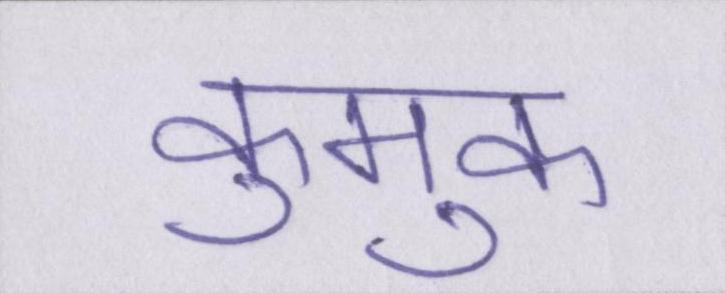 कुमुक